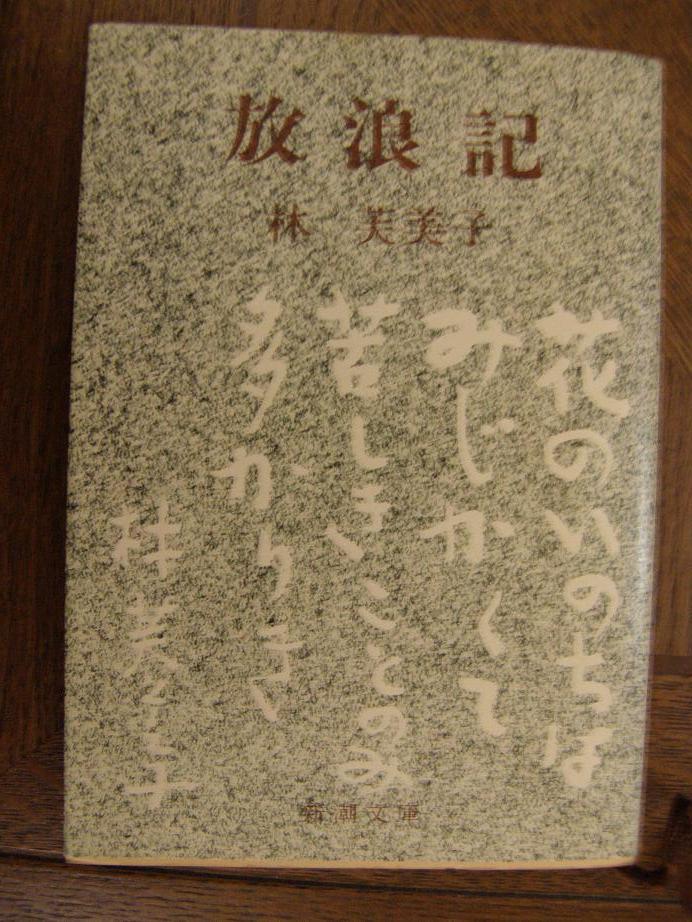 放浪記
林 芙美子
花のいのちは
みじかくて
苦しきことのみ
多かりき
林芙美子
新潮文庫